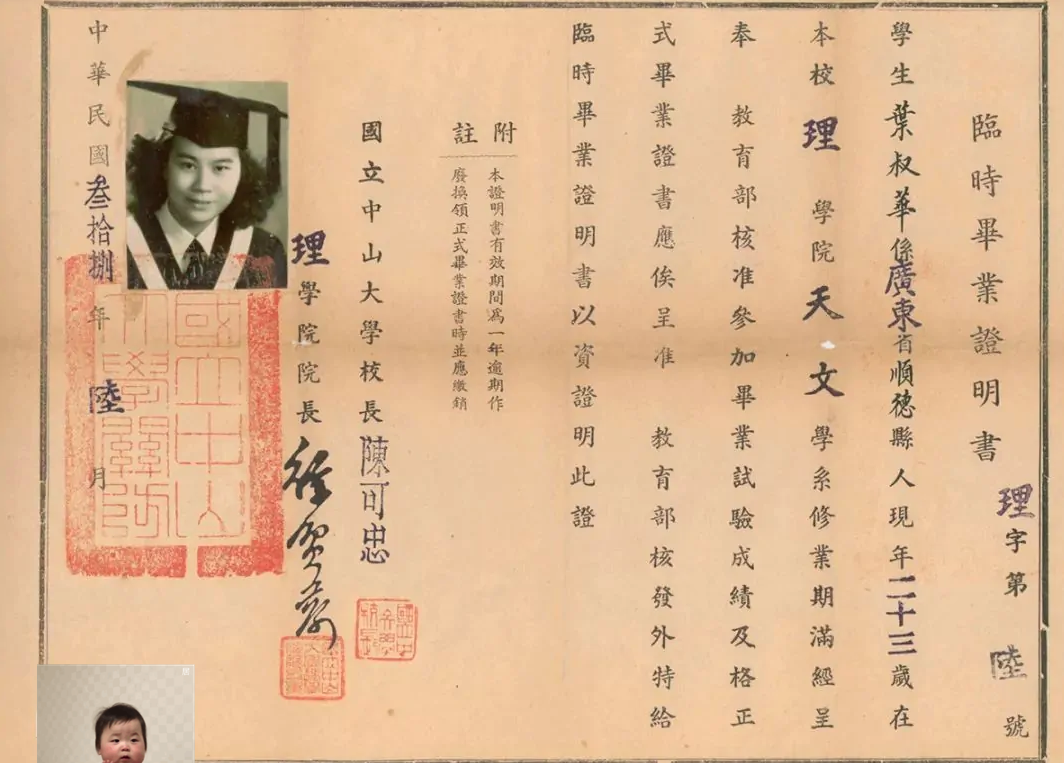 理字第陸號
臨時畢業證明書
學生葉叔華係廣東省順德縣人現年二十三歲在
本校理學院天文學系修業期滿經呈
奉 教育部核准參加畢業試驗成績及格正
式畢業證書應俟呈准 教育部核發外特給
臨時畢業證明書以資證明此證
附註
本證明書有效期間爲一年逾期作
廢換領正式畢業證書時並應繳銷
國立中山大學校長陳可忠
理學院院長徐賢恭
中華民國叁拾捌年陸月
國立中山
大學關防